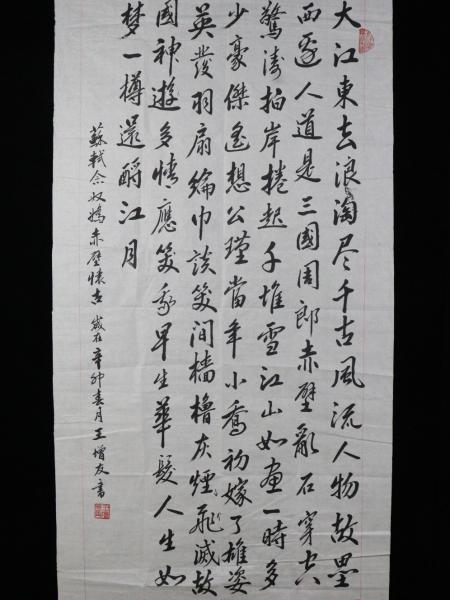 大江東去浪淘尽千古風流人物故壘
西邊人道是三國周郎赤壁亂石穿空
驚濤拍岸捲起千堆雪江山如畫一時多
少豪傑遙想公瑾當年小喬初嫁了雄姿
英發羽扇綸巾談笑间檣櫓灰煙飛滅故
國神遊多情應笑我早生華髮人生如
梦一樽還酹江月
蘇軾念奴嬌赤壁懷古 歲在辛卯春月王增友書